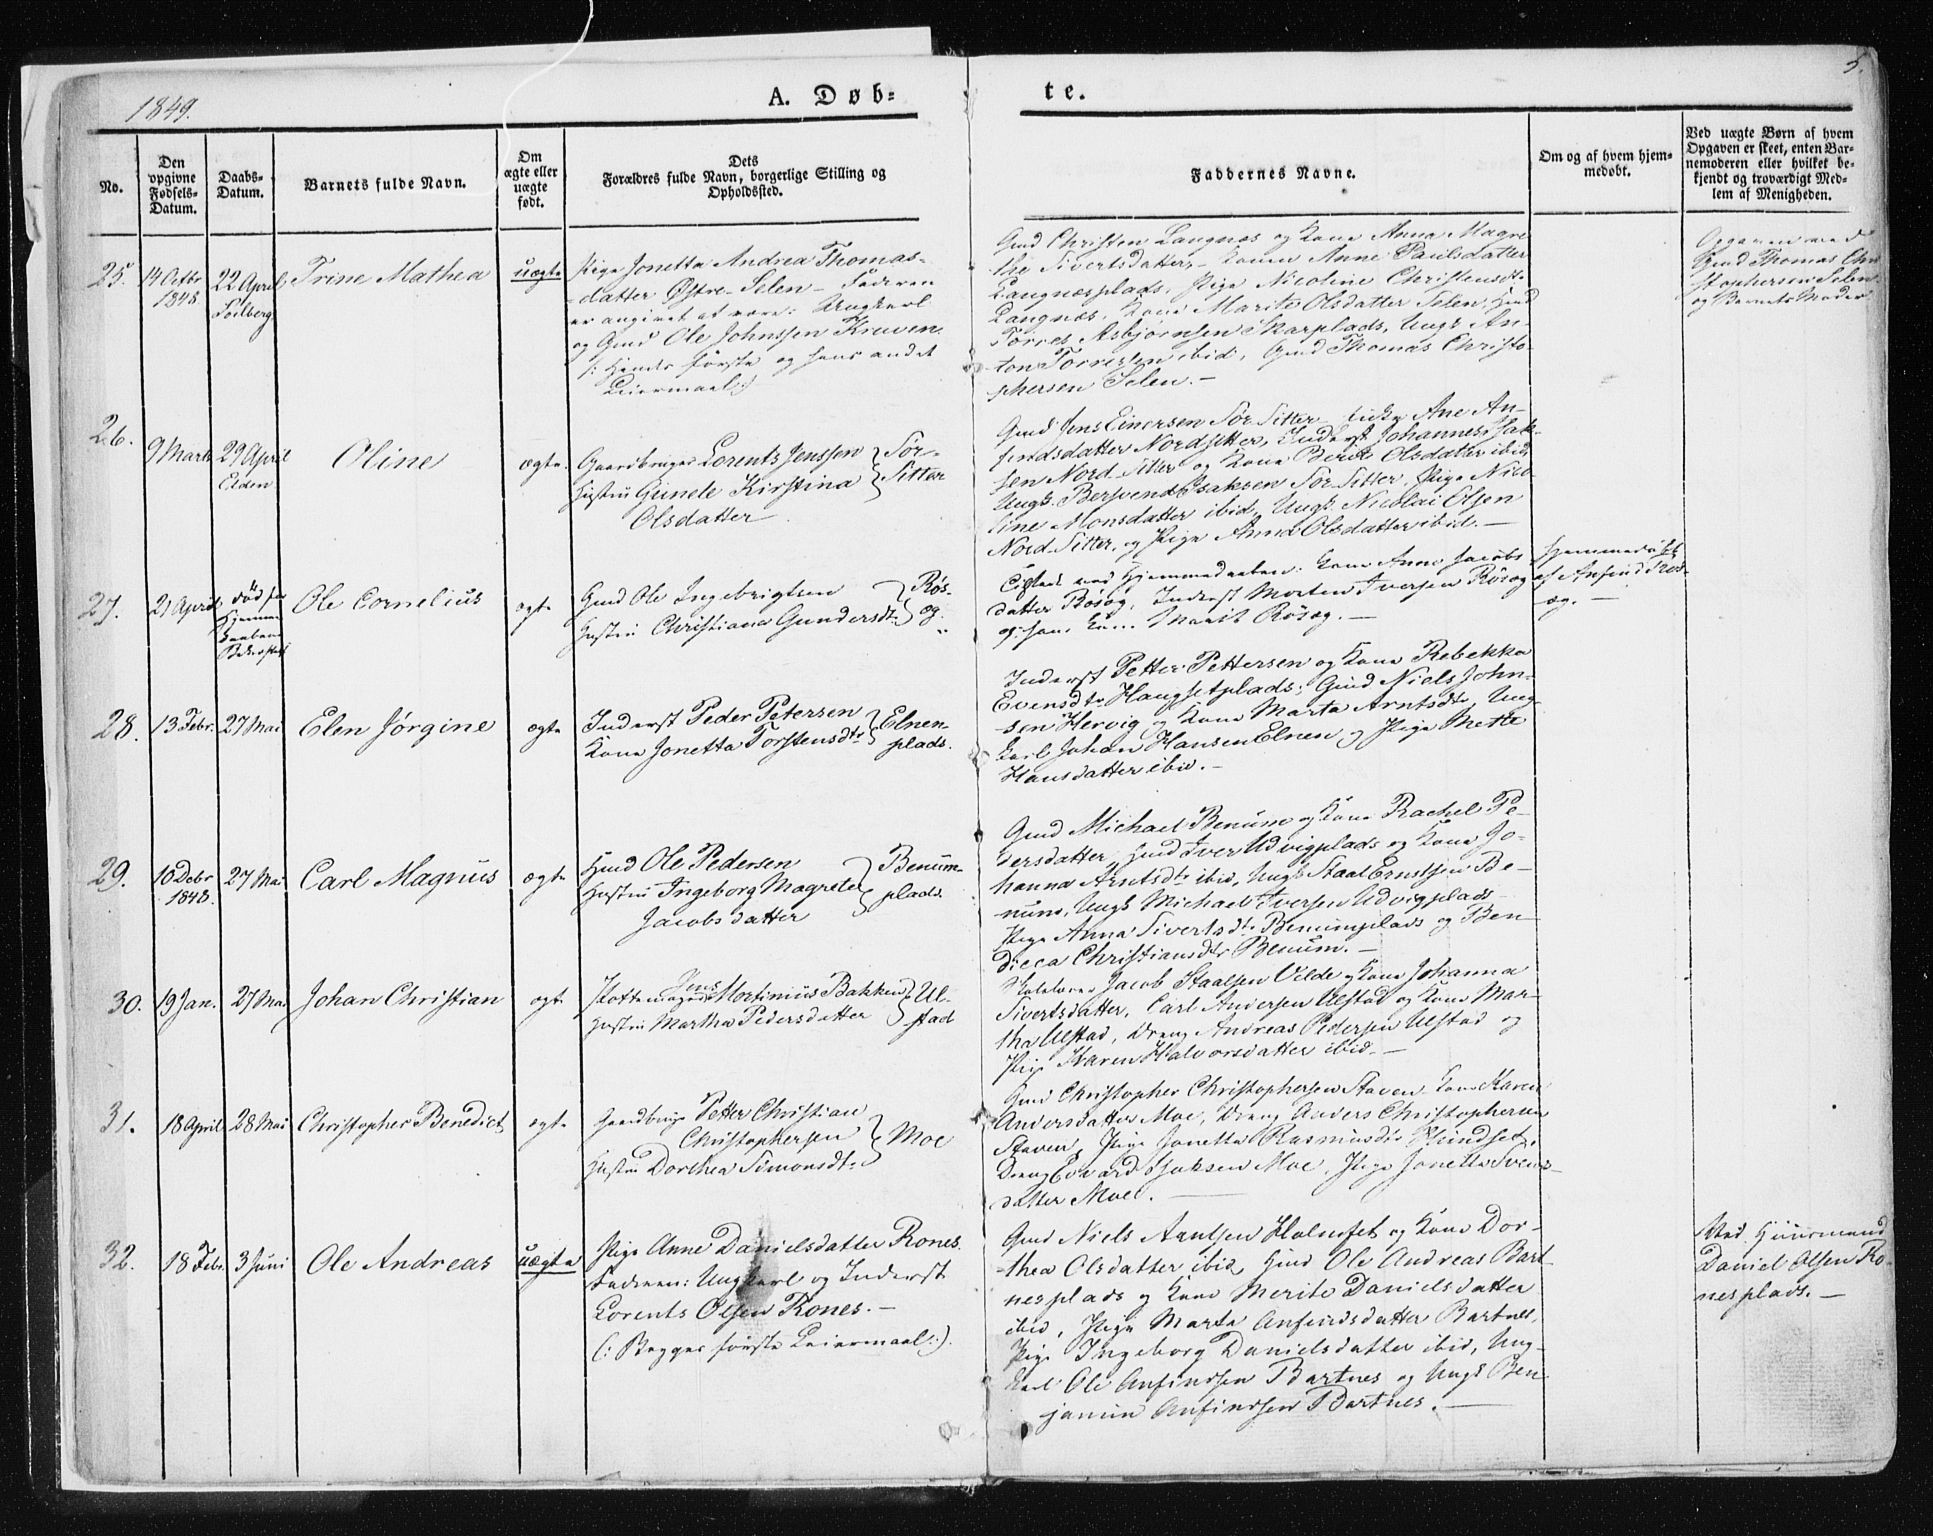 1849.
A. Døb-
te.
5.
No.
Den opgivne Fødsels-Datum.
Daabs-Datum.
Barnets fulde Navn.
Om ægte eller uægte født.
Dets Forældres fulde Navn, borgerlige Stilling og Opholdssted.
Faddernes Navne.
Om og af hvem hjem-medøbt.
Ved uægte Børn af hvem Opgaven er skeet, enten Bar-nemoderen eller hvilket be-kjendt og troværdigt Med-lem af Menigheden.
25.
14 Octbr 1848
22 April
Følberg
Trine Mathea
uægte
Pige Jonetta Andrea Thomas-
datter Østre-Selen - Faderen
er angivet at være: Ungkarl
og Gmd Ole Johnssen Kraven
(: Hendes første og hans andet
Leiermaal:)
Gmd Christen Langnæs og Kone Anna Magre
the Sivertsdatter, Konen Anne Paulsdatter
Langnæsplads, Pige Nicoline Christensdt.
Langnæs, Kone Marite Olsdatter Selen, Hmd
Torres Asbjørnsen Skarplads, Ungk An-
ton Torressen ibid, Gmd Thomas Christo-
phersen Selen. -
Opgaven ved
Gmd Thomas Chri
stophersen Selen
og Barnets Moder
26.
9 Marts
29 April
Elden
Oline
ægte.
Gaardbruger Lorents Jenssen
Hustru Gunele Kirstina
Olsdatter
Sør-
Sitter
Gmd Jens Einersen Sør Sitter, Ane An-
findsdatter Nordsitter, Inderst Johannes Isak-
sen Nord Sitter og Kone Berit Olsdatter ibid,
Ungk. Bersvend Isaksen Sør-Sitter, Pige Nico-
line Monsdatter ibid, Ungk. Nicolai Olsen
Nord-Sitter, og Pige Anna Olsdatter ibid. -
27.
21 April
død før
Hjemme
daaben
Ole Cornelius
ægte
Gmd Ole Ingebrigtsen
Hustru Christiana Gundersdt.
Røs-
æg.
ved Hjemmedaaben: Kone Anne Jacobs
datter Røsæg, Inderst Morten Iversen Røsæg
og hans Kone Marit Røsæg. -
Hjemmedøbt
af Anfind Røs-
æg. -
28.
13 Febr.
27 Mai
Elen Jørgine
ægte
Inderst Peder Petersen
Kone Jonetta Torstensdtr
Elnen-
plads.
Inderst Petter Pettersen og Kone Rebekka
Evensdtr Haugsetplads; Gmd Niels John-
sen Hervig og Kone Marta Arntsdtr, Ung-
karl Johan Hansen Elnen og Pige Mette
Hansdatter ibid. -
29.
10 Decbr
1848.
27 Mai
Carl Magnus
ægte
Hmd Ole Pedersen
Hustru Ingeborg Magrete
Jacobsdatter
Benum-
plads.
Gmd Michael Benum og Kone Rachel Pe-
dersdatter, Hmd Iver Udvigplads og Kone Jo-
hanna Arntsdtr ibid, Ungk Staal Ernstsen Be-
num, Ungk Michael Iversen Udvigplads
Pige Anna Sivertsdtr Benumplads og Ben
dicca Christiansdtr Benum. -
30.
19 Jan.
27 Mai
Johan Christian
ægte
Jens
Pottemager Mortinius Bakken
Hustru Martha Pedersdatter
Ul-
stad
Jacob Staalsen Vilde og Kone Johanna
Sivertsdatter, Carl Andersen Ulstad og Kone Mar-
tha Ulstad, Dreng Andreas Pedersen Ulstad og
Pige Karen Halvorsdatter ibid. -
31.
18 April
28 Mai
Christopher Benedict
ægte
Gaardbruger Petter Christian
Christophersen
Hustru Dorthea Simonsdtr
Moe
Gmd Christopher Christophersen Staven Kone Karen
Andersdatter Moe, Dreng Anders Christophersen
Staven, Pige Jonetta Rasmusdtr
Dreng Edvard Isaksen Moe, Pige Jonetta Svens-
datter Moe. -
32.
18 Febr.
3 Juni
Ole Andreas
uægte
Pige Anne Danielsdatter Rones.
Faderen: Ungkarl og Inderst
Lorents Olsen Rones. -
(: Begges første Leiermaal:).
Gmd Niels Arntsen Holmset og Kone Dor-
thea Olsdatter ibid, Hmd Ole Andreas Bart-
nesplads og Kone Merite Danielsdatter
ibid, Pige Marta Anfindsdatter Bartnes,
Pige Ingeborg Danielsdatter ibid, Ung-
karl Ole Anfindsen Bartnes og Ungk Ben
jamin Anfindsen Bartnes. -
Ved Huusmand
Daniel Olsen Ro-
nesplads. -